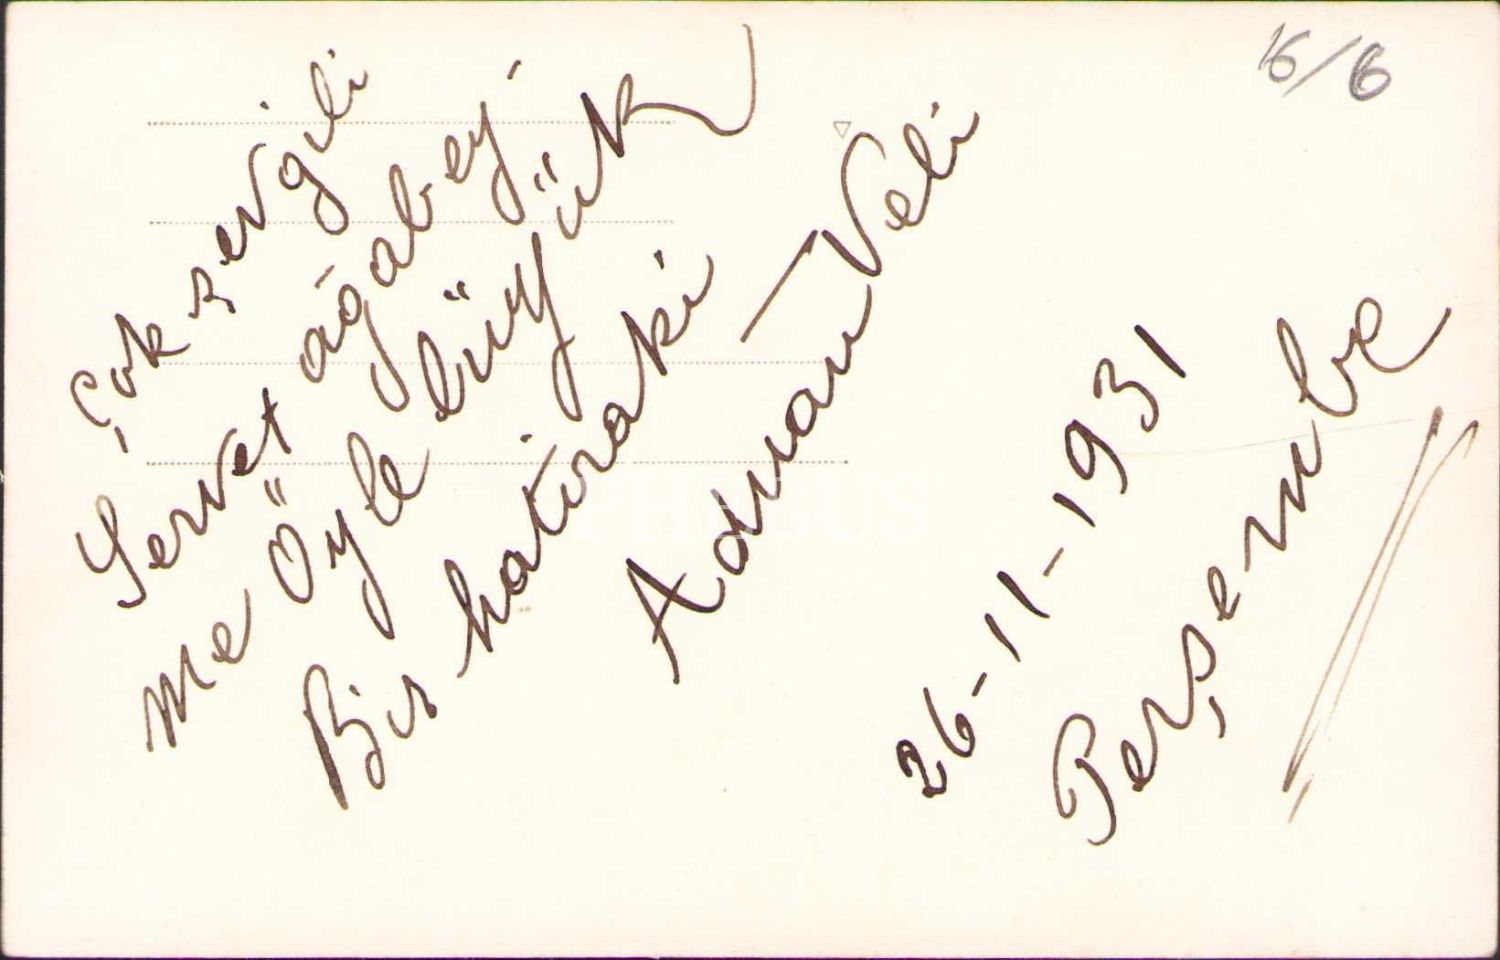 Çok sevgili
Servet ağabey-
me Öyle büyük
Bir hatıraki
Adnan Veli
26-11-1931
Perşembe
6/6